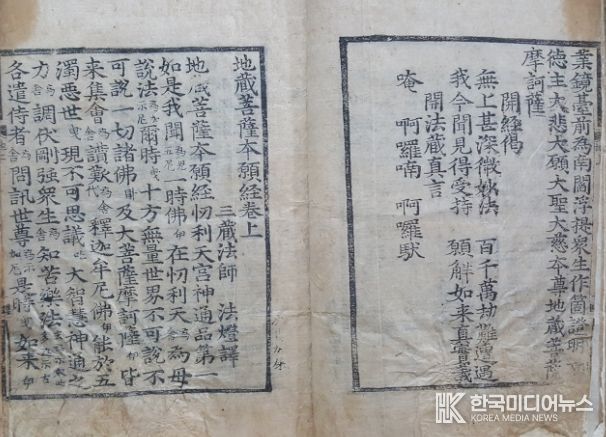 業鏡臺前為南閻浮提衆生作箇證明
德主大悲大願大聖大慈本尊地藏菩薩
摩訶薩
開經偈
無上甚深微妙法 百千萬劫難遭遇
我今聞見得受持 願解如來真實義
開法藏真言
唵 啊囉喃 啊囉馱
地藏菩薩本願經卷上
三藏法師 法燈譯
地藏菩薩本願經忉利天宮神通品第一
如是我聞 時佛 在忉利天 為母
說法 爾時 十方無量世界不可說不
可說一切諸佛 及大菩薩摩訶薩 皆
來集會 讚歎 釋迦牟尼佛 能於五
濁惡世 現不可思議 大智慧神通之
力 調伏剛强衆生 知苦樂法
各遣侍者 問訊世尊 是時 如来
한국미디어뉴스
KOREA MEDIA NEWS